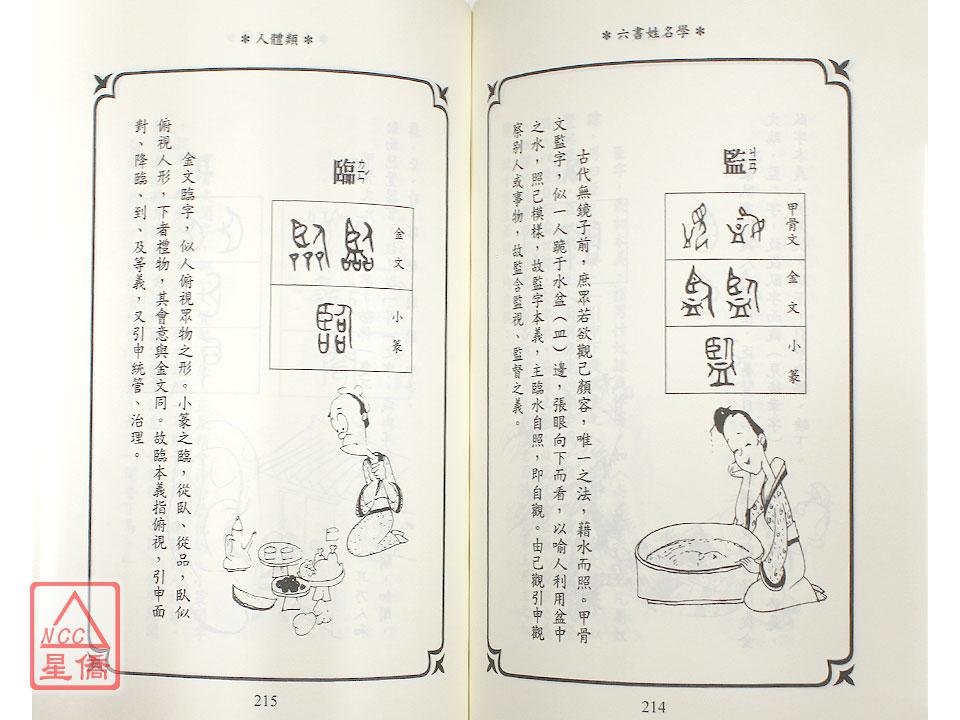 ＊六書姓名學＊
監ㄐㄧㄢ
甲骨文
金文
小篆
古代無鏡子前，庶眾若欲觀己顏容，唯一之法，藉水而照。甲骨
文監字，似一人跪于水盆（皿）邊，張眼向下而看，以喻人利用盆中
之水，照己模樣，故監字本義，主臨水自照，即自觀。由己觀引申觀
察別人或事物，故監含監視、監督之義。
214
＊人體類＊
臨ㄌㄧㄣˊ
金文
小篆
金文臨字，似人俯視眾物之形。小篆之臨，從臥、從品，臥似
俯視人形，下者禮物，其會意與金文同。故臨本義指俯視，引申面
對、降臨、到、及等義，又引申統管、治理。
215
NCC
星僑